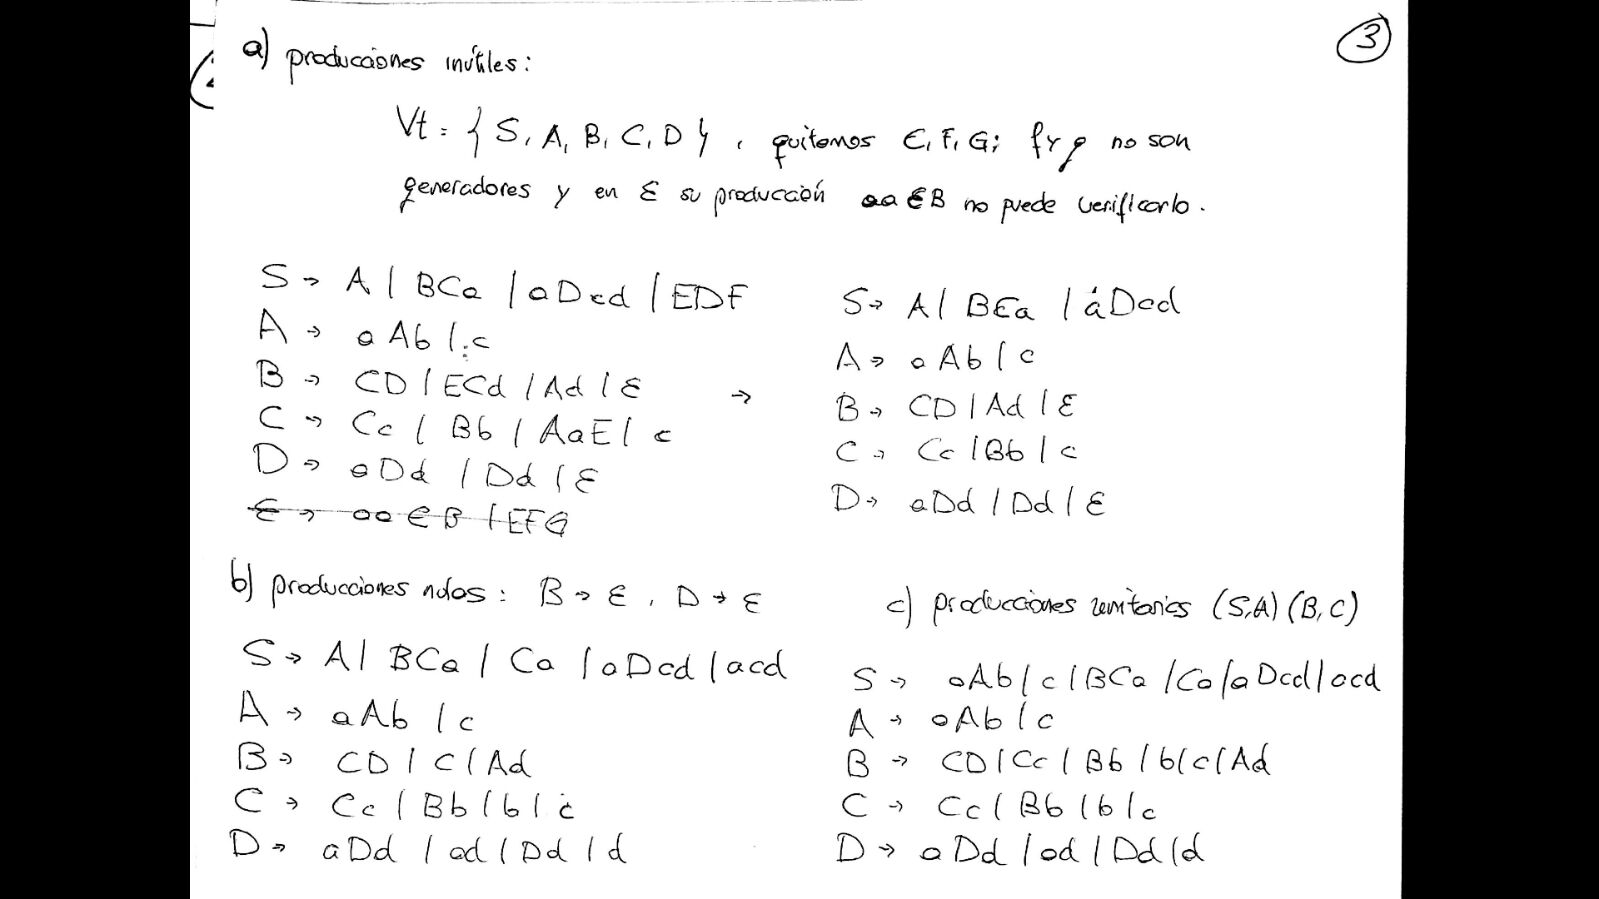 3
a) producciones inútiles:
Vt = { S, A, B, C, D } , quitamos E, F, G; f y g no son
generadores y en E su producción aa E B no puede verificarlo.
S → A | BCa | aDcd | EDF
A → aAb | c
B → CD | ECd | Ad | ε
C → Cc | Bb | AaE | c
D → aDd | Dd | ε
E → aa E B | EFG
→
S → A | BCa | aDcd
A → aAb | c
B → CD | Ad | ε
C → Cc | Bb | c
D → aDd | Dd | ε
b) producciones nulas: B → ε , D → ε
S → A | BCa | Ca | aDcd | acd
A → aAb | c
B → CD | C | Ad
C → Cc | Bb | b | c
D → aDd | ad | Dd | d
c) producciones unitarias (S,A) (B,C)
S → aAb | c | BCa | Ca | aDcd | acd
A → aAb | c
B → CD | Cc | Bb | b | c | Ad
C → Cc | Bb | b | c
D → aDd | ad | Dd | d